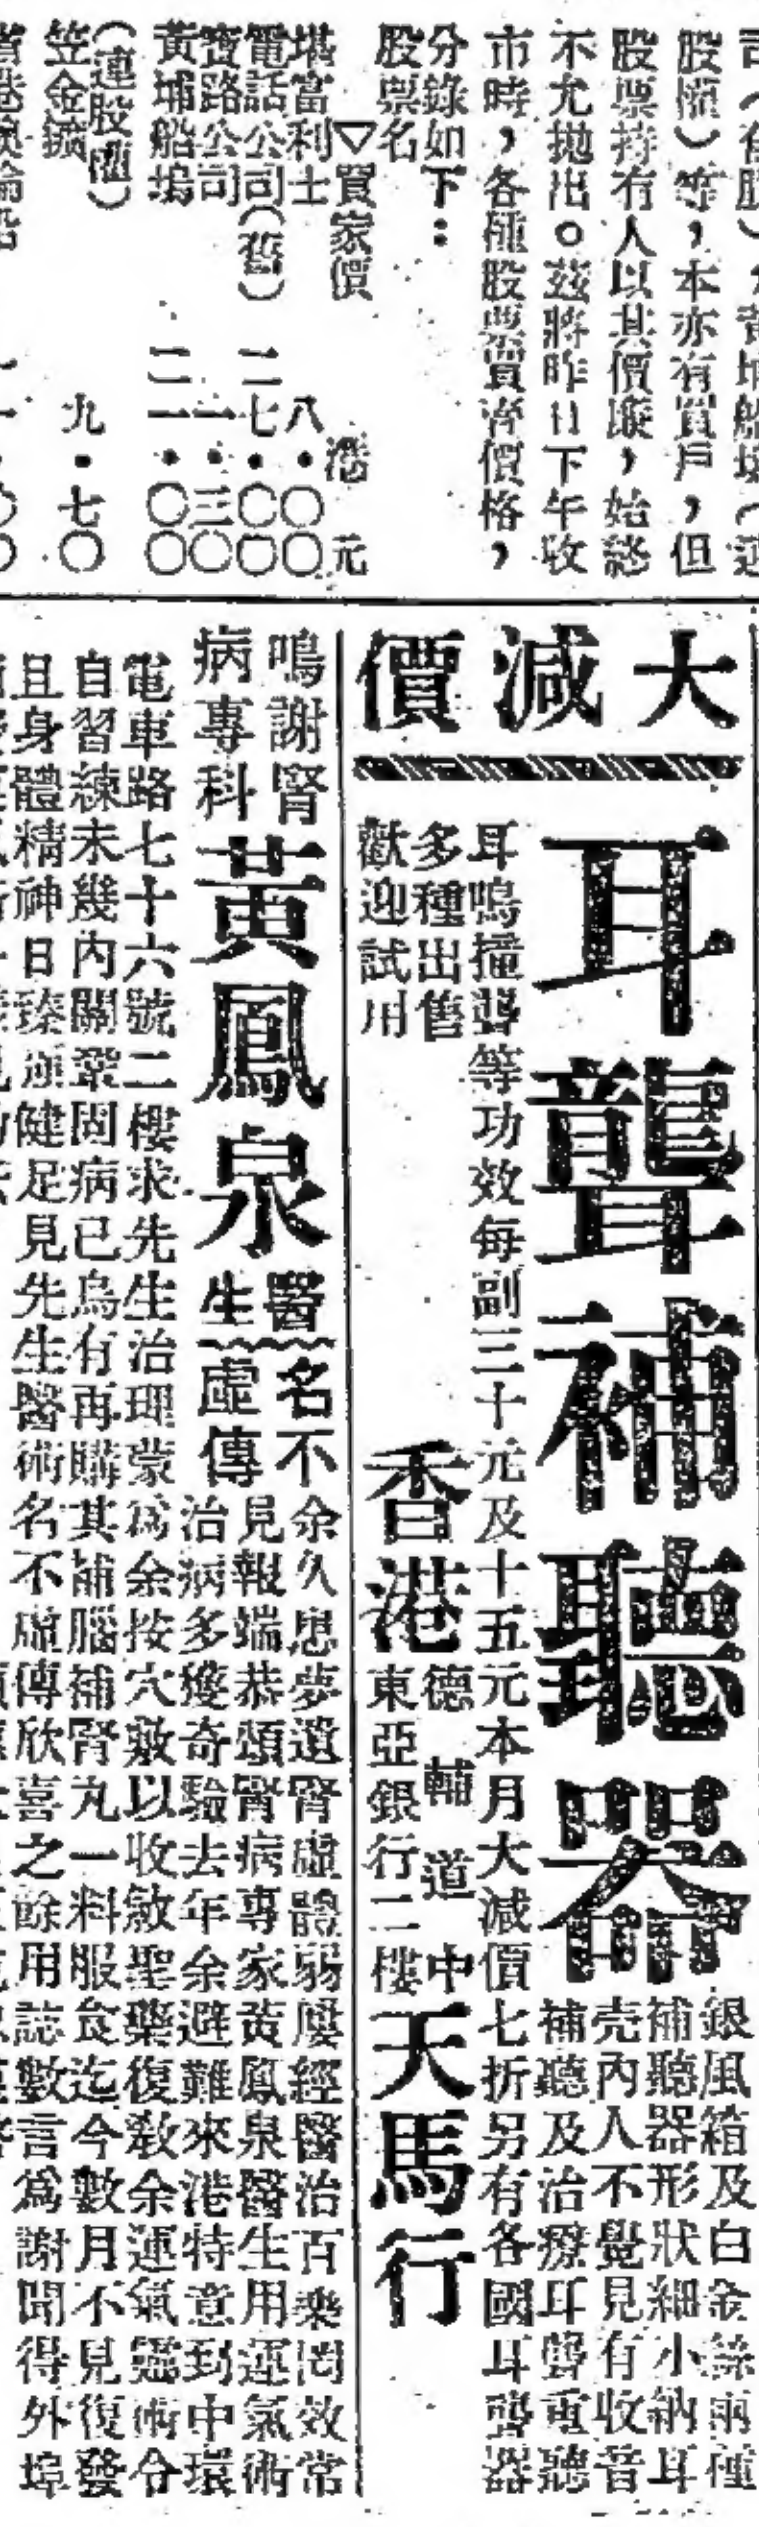 股權)等,本亦有買戶,但
股票持有人以其價廉,始終
不允拋出。茲將昨日下午收
市時,各種股票買賣價格,
分錄如下:
股票名
▽買家價 港元
堪富利士 八・〇〇
電話公司(舊) 二七・〇〇
寶路公司 一・三〇
黃埔船塢 二一・〇〇
(連股權)
笠金鑛 九・七〇
大減價
耳聾補聽器
銀風箱及白金絲兩種
補聽器形狀細小納耳
壳內人不覺見有收音
補聽及治療耳聾重聽
耳鳴撞聾等功效每副三十元及十五元本月大減價七折另有各國耳聾器
多種出售
歡迎試用
香港
德輔道中
東亞銀行二樓
天馬行
鳴謝腎
病專科
黃鳳泉
醫生
名不
虛傳
余久患夢遺腎虛體弱屢經醫治百藥罔效常
見報端恭頌腎病專家黃鳳泉醫生用運氣術
治病多獲奇驗去年余避難來港特意到中環
電車路七十六號二樓求先生治理蒙為余按穴敷以收斂聖藥復教余運氣靈術令
自習練未幾內關鞏固病已烏有再購其補腦補腎丸一料服食迄今數月不見復發
且身體精神日臻頑健足見先生醫術名不虛傳欣喜之餘用誌數言為謝聞得外埠